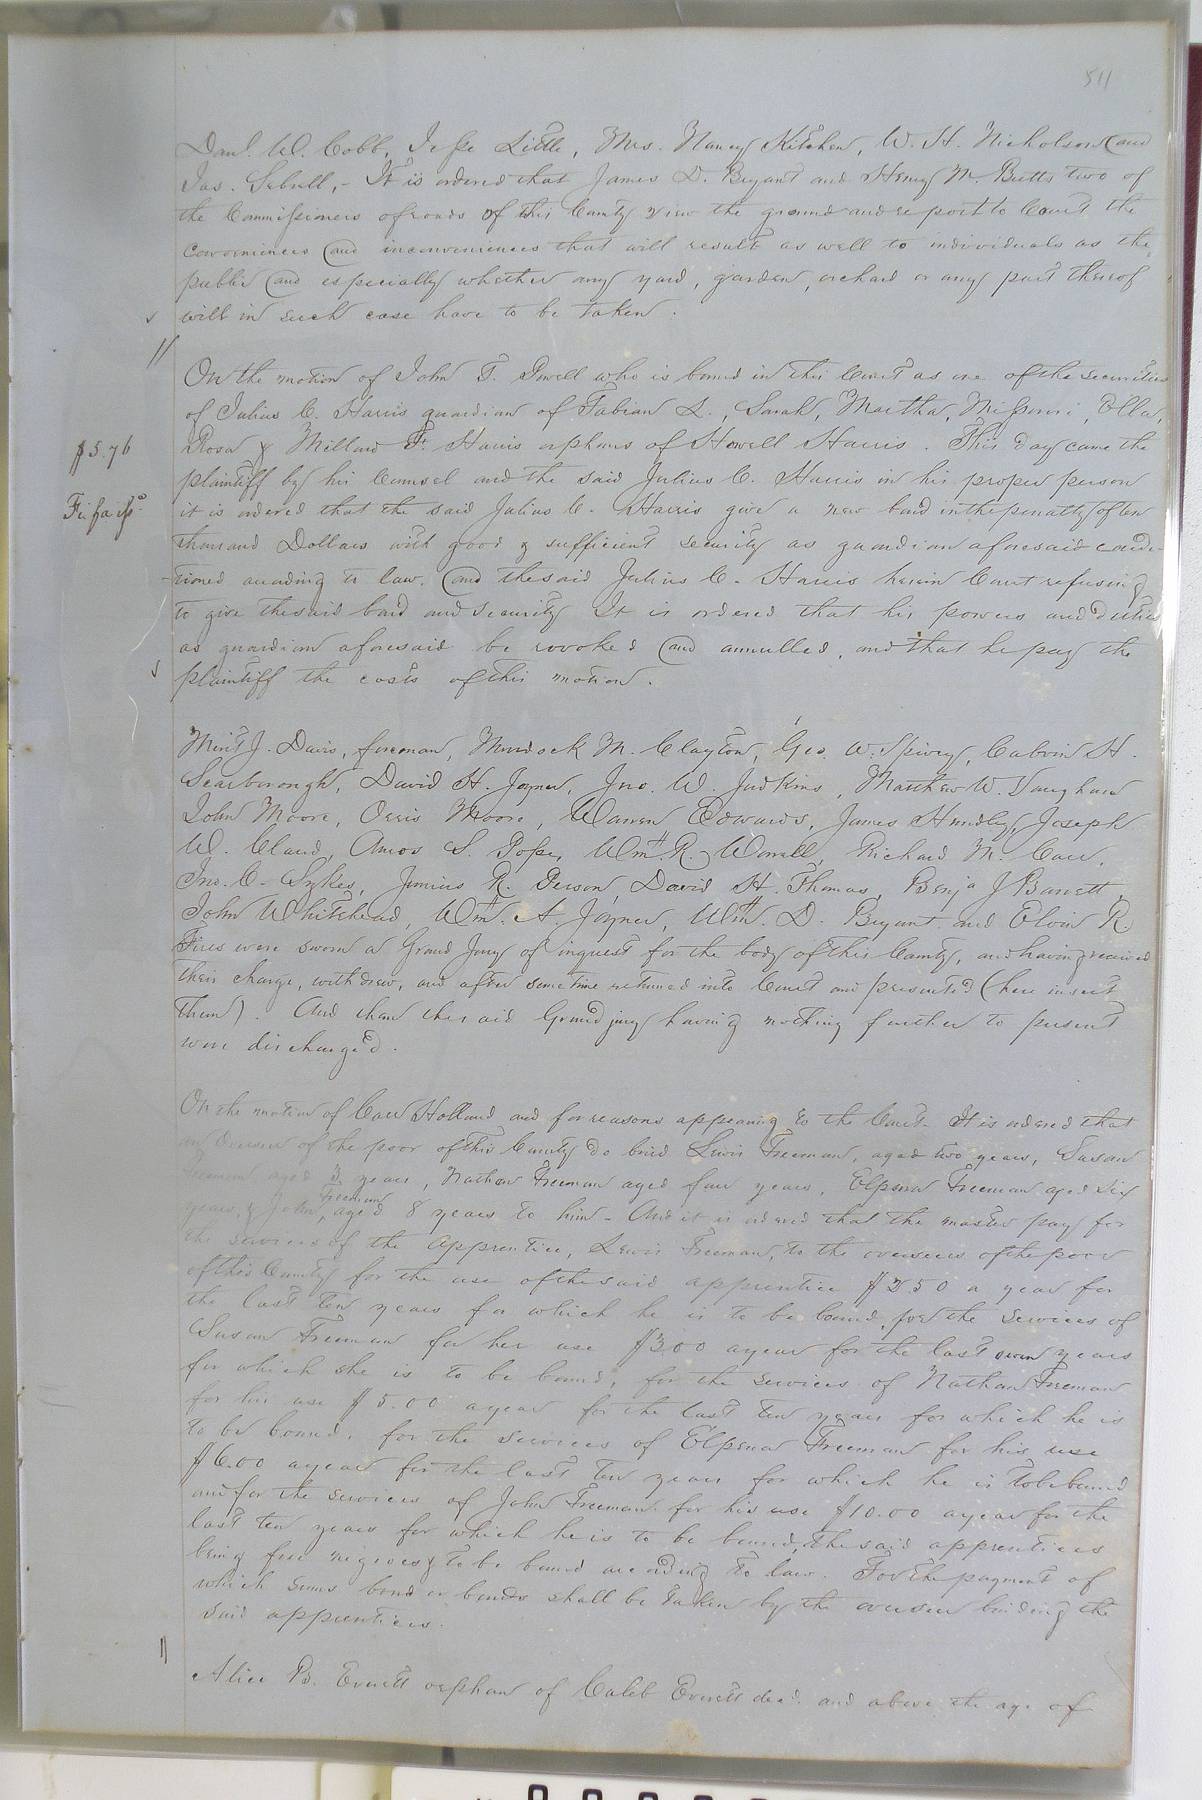 511
Danl. W. Cobb, Jesse Little, Mrs. Nancy Kitchen, W. H. Nicholson and
Jas. Sebrell, - It is ordered that James D. Bryant and Henry M. Butts two of
the Commissioners of roads of this County view the ground and report to Court the
conveniences and inconveniences that will result as well to individuals as the
public and especially whether any yard, garden, orchard or any part thereof
will in such case have to be taken.
On the motion of John T. Powell who is bound in this Court as one of the securities
of Julius C. Harris guardian of Fabian L., Sarah, Martha, Missouri, Ella,
$5.76
Rosa & Millard F. Harris orphans of Howell Harris. This day came the
plaintiff by his Counsel and the said Julius C. Harris in his proper person
Fi fa isd.
it is ordered that the said Julius C. Harris give a new bond in the penalty of ten
thousand Dollars with good & sufficient security as guardian aforesaid condi-
-tioned according to law. and the said Julius C. Harris herein Court refusing
to give the said bond and security It is ordered that his powers and duties
as guardian aforesaid be revoked and annulled, and that he pay the
plaintiff the costs of this motion.
J. Davis, foreman, Murdock M. Clayton, Geo. W. Spivey, Calvin H.
Scarborough, David H. Joyner, Jno. W. Judkins, Matthew W. Vaughan
John Moore, Orris Moore, Warren Edwards, James Hundley, Joseph
W. Claud, Amos S. Pope, Wm. R. Worrell, Richard M. Carr,
Jno. C. Sykes, Junius R. Person, David H. Thomas, Benja J Barrett,
John Whitehead, Wm. A. Joyner, Wm. D. Bryant and Elvin R.
were sworn a Grand Jury of inquest for the body of this County, and having received
their charge, withdrew, and after sometime returned into Court and presented (here insert
them). And then the said Grand jury having nothing further to present
were discharged.
On the motion of Carr Holland and for reasons appearing to the Court. It is ordered that
an Overseer of the poor of this County do bind Lewis Freeman, aged two years, Susan
Freeman aged 3 years, Nathan Freeman aged four years, Elpena Freeman aged six
years, & John Freeman, aged 8 years to him - And it is ordered that the master pay for
the services of the apprentice, Lewis Freeman, to the overseers of the poor
of this County for the use of the said apprentice $2.50 a year for
the last ten years for which he is to be bound, for the services of
Susan Freeman for her use $3.00 a year for the last seven years
for which she is to be bound, for the services of Nathan Freeman
for his use $5.00 a year for the last ten years for which he is
to be bound, for the services of Elpena Freeman for his use
$6.00 a year for the last ten years for which he is to be bound
and for the services of John Freeman for his use $10.00 a year for the
last ten years for which he is to be bound, the said apprentices
being free negroes & to be bound according to law. For the payment of
which sums bond or bonds shall be taken by the overseer binding the
said apprentices.
Alice B. Everett orphan of Caleb Everett decd. and above the age of